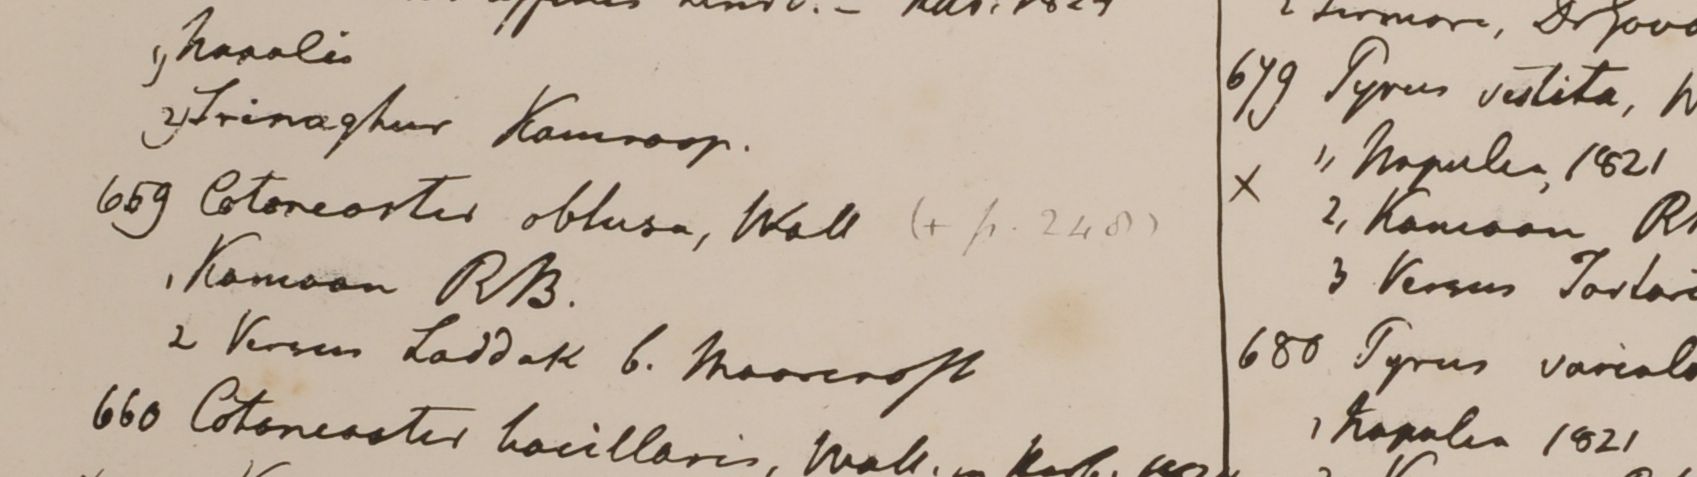 affinis Lindl. – Hab. 1824
1, Napalis
2, Srinaghur Kamroop.
659 Cotoneaster obtusa, Wall (+ p. 248)
1, Kamoon RB.
2 Versus Laddak b. Moorcroft
660 Cotoneaster bacillaris, Wall. in Herb.
2 Sirmore, Dr Gova
679 Pyrus vestita, W
1, Napalea, 1821
X
2, Kamoon
3 Versus Tartari
680 Pyrus variolo
1 Napalea 1821